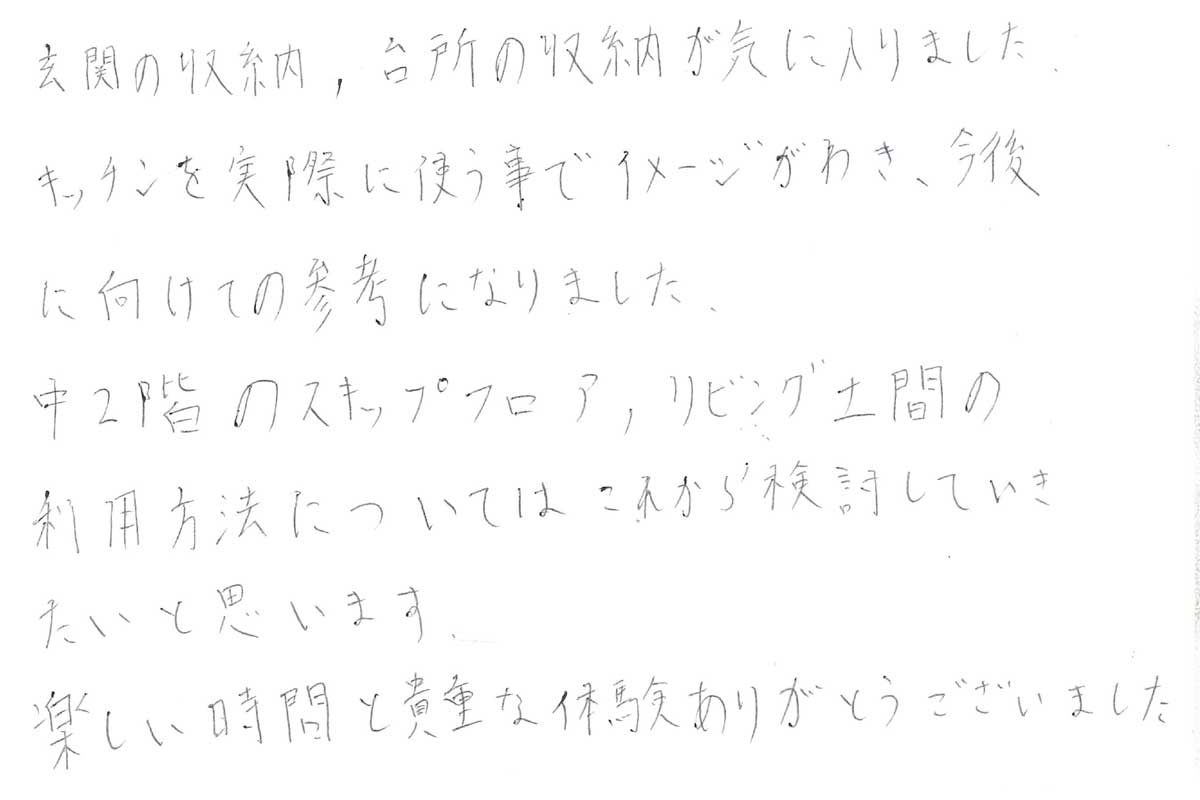 玄関の収納,台所の収納が気に入りました.
キッチンを実際に使う事でイメージがわき、今後
に向けての参考になりました、
中2階のスキップフロア,リビング土間の
利用方法についてはこれから検討していき
たいと思います、
楽しい時間と貴重な体験ありがとうございました